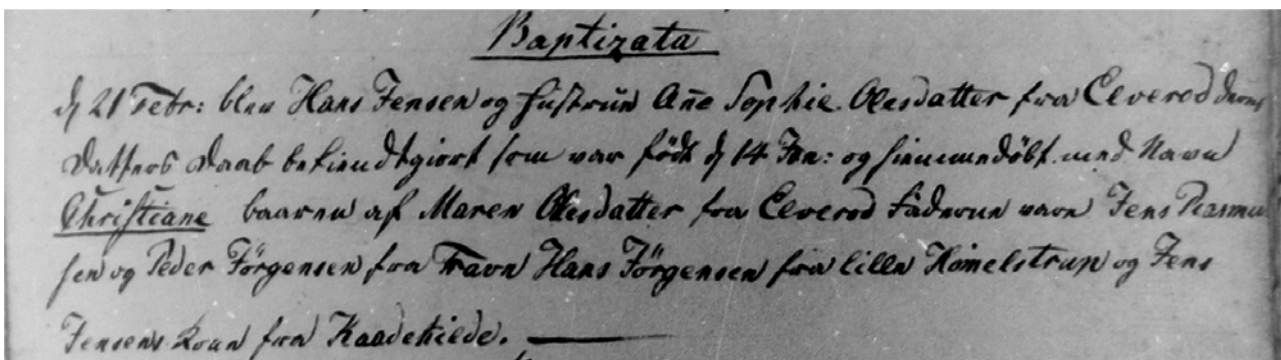 Baptizata
d 21 Febr: blev Hans Jensen og Hustrue Añe Sophie Olesdatter fra Elverod deres
Datters Daab bekiendtgiort som var födt d 14 Jan: og hiemmedöbt med Navn
Christiane baaren af Maren Olesdatter fra Elverod Fadderne vare Jens Rasmu-
sen og Peder Jörgensen fra Fravn Hans Jörgensen fra Lille Himelstrup og Jens
Jensens Kone fra Kaadekilde.